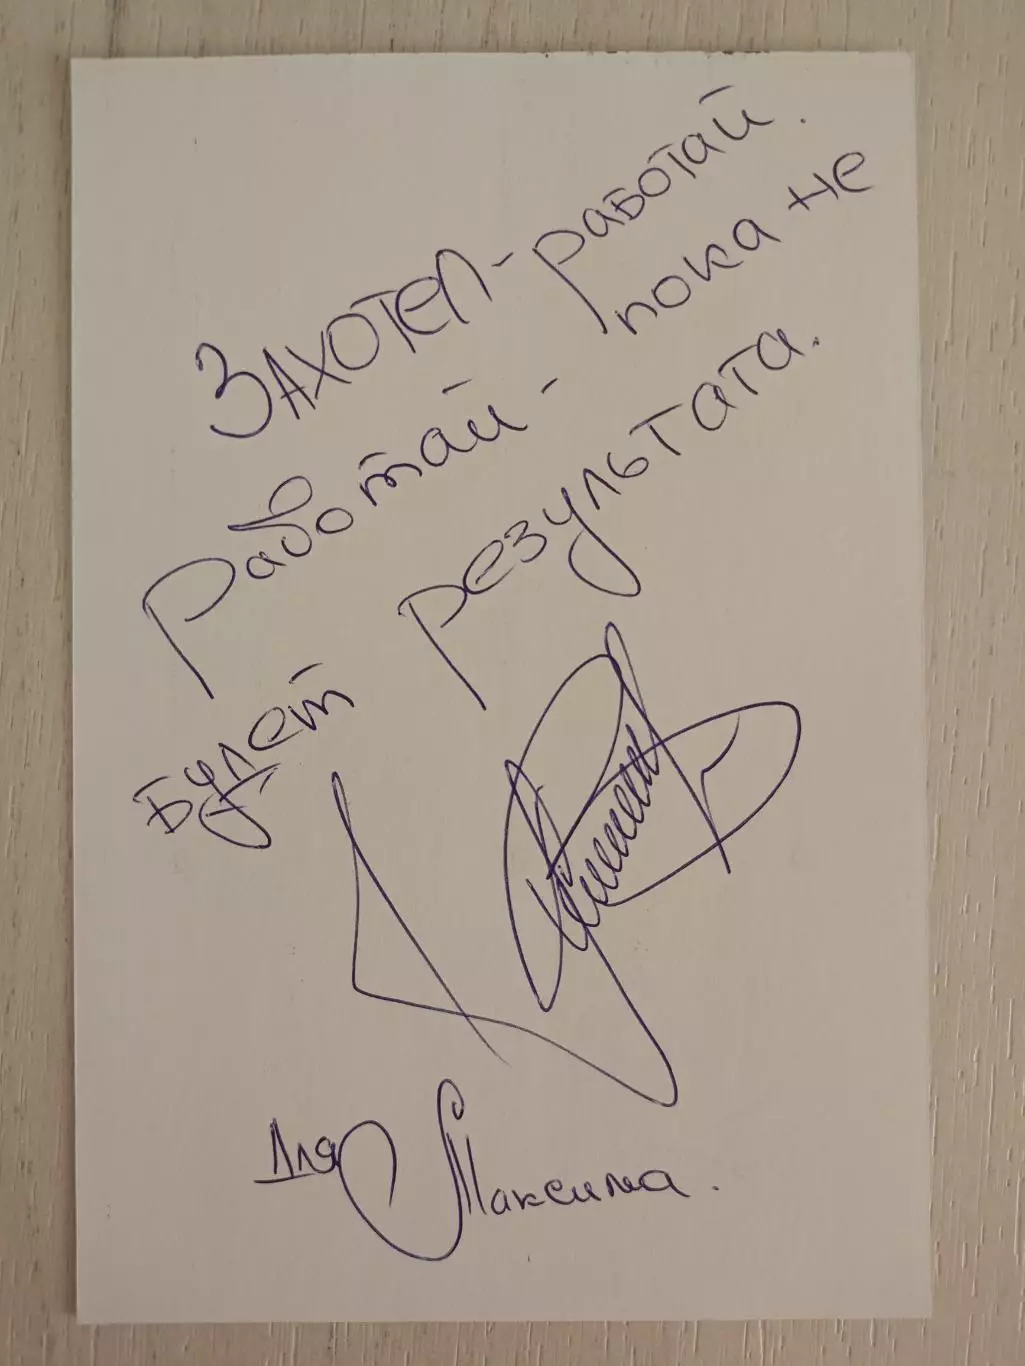 Захотел - работай.
Работай - пока не
будет результата.
Для Максима.